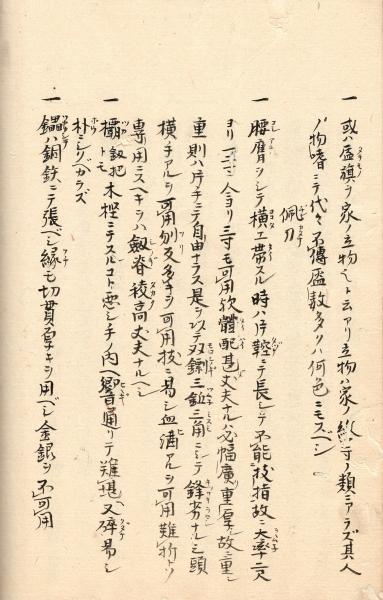 一 或ハ盔旗ヲ家ノ立物也ト云アリ立物ハ家ノ紋等ノ類ニアラズ其人
ノ物嗜ニテ代々不傳盔數多クハ何色ニモスベシ
佩刀
一 腰脊ヲシテ横エ帯スル時ハ片鞚ニテ長シテ不能技指故ニ大率二尺
ヨリ二寸今ヨリ三寸モ可用欤體配甚丈夫ナルハ必幅廣重厚故ニ重シ
重則ハ片手ニテ自由ナラス是ヲ以テ双鎬三鈭三角ニシテ鋒劣ナルシ頭
横手アルヲ可用刎反多キヲ可用技ニ易シ血溝アルヲ可用難折トソ
専用ニスヘキヲハ劔脊稜高丈夫ナルヘシ
一 欛釼把トモ木樫ニテスルコト悪シ手ノ内ヘ響通リテ難堪又碎易シ
朴ニシクベカラズ
一 鑘ハ銅鉄ニテ張ベシ縁モ切貫厚キヲ用ベシ金銀ヲ不可用